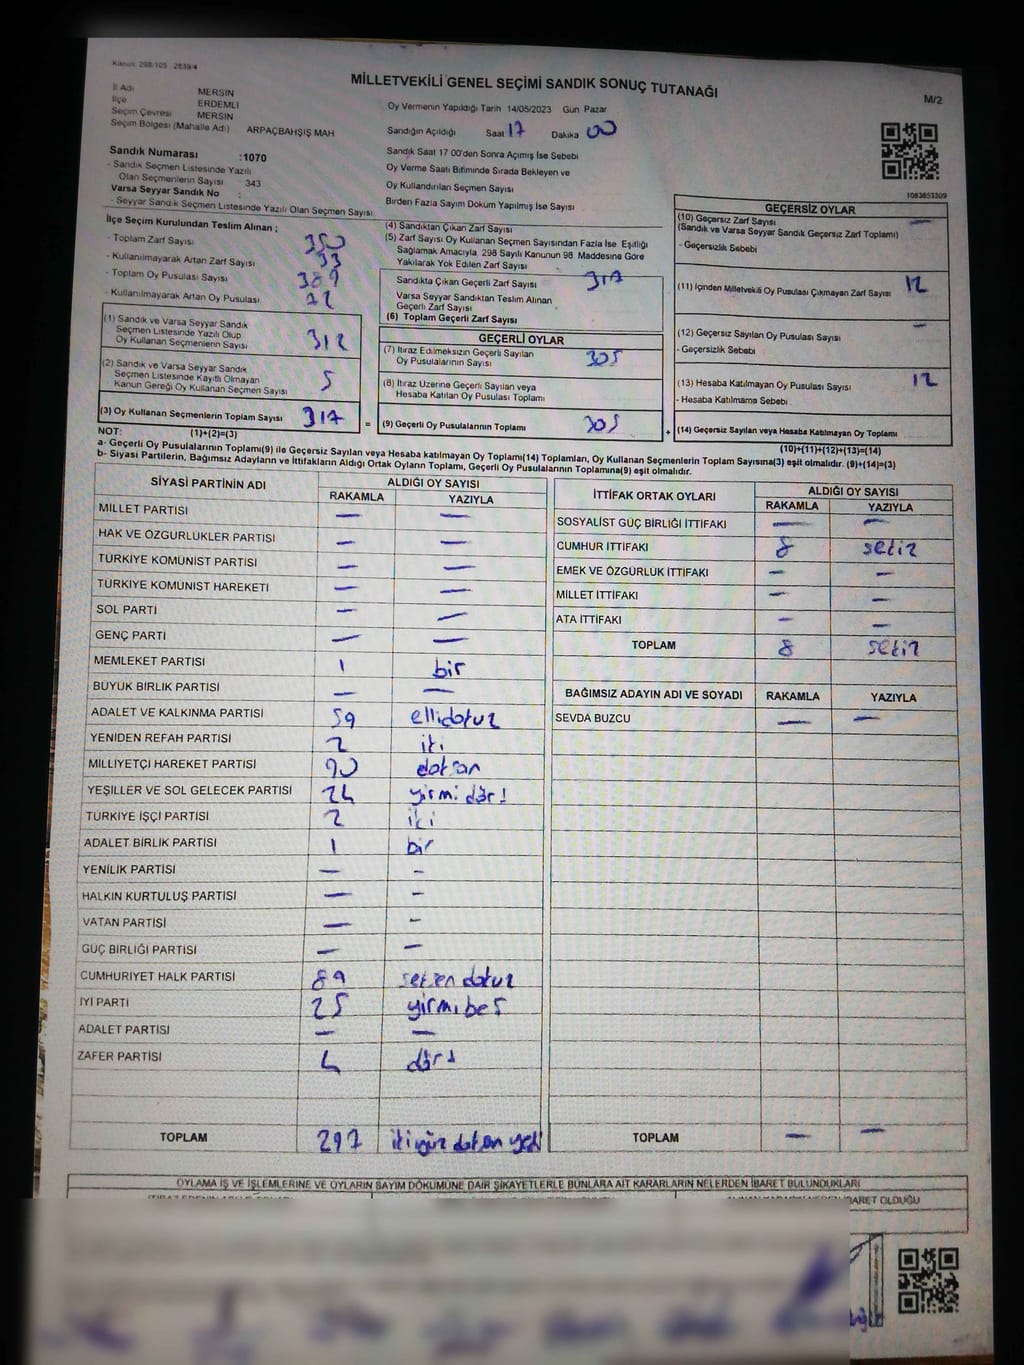 Kanun: 298/105 2839/4
MİLLETVEKİLİ GENEL SEÇİMİ SANDIK SONUÇ TUTANAĞI
M/2
İl Adı MERSİN
İlçe ERDEMLİ
Seçim Çevresi MERSİN
Seçim Bölgesi (Mahalle Adı) ARPAÇBAHŞİŞ MAH
Sandık Numarası :1070
- Sandık Seçmen Listesinde Yazılı
Olan Seçmenlerin Sayısı 343
Varsa Seyyar Sandık No :
- Seyyar Sandık Seçmen Listesinde Yazılı Olan Seçmen Sayısı
Oy Vermenin Yapıldığı Tarih 14/05/2023 Gün Pazar
Sandığın Açıldığı Saat 17 Dakika 00
Sandık Saat 17 00'den Sonra Açımış İse Sebebi
Oy Verme Saati Bitiminde Sırada Bekleyen ve
Oy Kullandırılan Seçmen Sayısı
Birden Fazla Sayım Döküm Yapılmış İse Sayısı
1083653509
İlçe Seçim Kurulundan Teslim Alınan ;
- Toplam Zarf Sayısı 350
- Kullanılmayarak Artan Zarf Sayısı 33
- Toplam Oy Pusulası Sayısı 389
- Kullanılmayarak Artan Oy Pusulası 72
(1) Sandık ve Varsa Seyyar Sandık
Seçmen Listesinde Yazılı Olup
Oy Kullanan Seçmenlerin Sayısı 312
(2) Sandık ve Varsa Seyyar Sandık
Seçmen Listesinde Kayıtlı Olmayan
Kanun Gereği Oy Kullanan Seçmen Sayısı 5
(3) Oy Kullanan Seçmenlerin Toplam Sayısı 317 =
(4) Sandıktan Çıkan Zarf Sayısı
(5) Zarf Sayısı Oy Kullanan Seçmen Sayısından Fazla İse, Eşitliği
Sağlamak Amacıyla, 298 Sayılı Kanunun 98. Maddesine Göre
Yakılarak Yok Edilen Zarf Sayısı
Sandıkta Çıkan Geçerli Zarf Sayısı 317
Varsa Seyyar Sandıktan Teslim Alınan
Geçerli Zarf Sayısı
(6) Toplam Geçerli Zarf Sayısı
GEÇERLİ OYLAR
(7) İtiraz Edilmeksizin Geçerli Sayılan
Oy Pusulalarının Sayısı 305
(8) İtiraz Üzerine Geçerli Sayılan veya
Hesaba Katılan Oy Pusulası Toplamı
(9) Geçerli Oy Pusulalarının Toplamı 305 +
GEÇERSİZ OYLAR
(10) Geçersiz Zarf Sayısı —
(Sandık ve Varsa Seyyar Sandık Geçersiz Zarf Toplamı)
- Geçersizlik Sebebi
(11) İçinden Milletvekili Oy Pusulası Çıkmayan Zarf Sayısı 12
(12) Geçersiz Sayılan Oy Pusulası Sayısı —
- Geçersizlik Sebebi
(13) Hesaba Katılmayan Oy Pusulası Sayısı 12
- Hesaba Katılmama Sebebi
(14) Geçersiz Sayılan veya Hesaba Katılmayan Oy Toplamı
NOT: (1)+(2)=(3) (10)+(11)+(12)+(13)=(14)
a- Geçerli Oy Pusulalarının Toplamı(9) ile Geçersiz Sayılan veya Hesaba katılmayan Oy Toplamı(14) Toplamları, Oy Kullanan Seçmenlerin Toplam Sayısına(3) eşit olmalıdır. (9)+(14)=(3)
b- Siyasi Partilerin, Bağımsız Adayların ve İttifakların Aldığı Ortak Oyların Toplamı, Geçerli Oy Pusulalarının Toplamına(9) eşit olmalıdır.
SİYASİ PARTİNİN ADI ALDIĞI OY SAYISI
RAKAMLA YAZIYLA
MİLLET PARTİSİ — —
HAK VE ÖZGÜRLÜKLER PARTİSİ — —
TÜRKİYE KOMÜNİST PARTİSİ — —
TÜRKİYE KOMÜNİST HAREKETİ — —
SOL PARTİ — —
GENÇ PARTİ — —
MEMLEKET PARTİSİ 1 bir
BÜYÜK BİRLİK PARTİSİ — —
ADALET VE KALKINMA PARTİSİ 59 ellidokuz
YENİDEN REFAH PARTİSİ 2 iki
MİLLİYETÇİ HAREKET PARTİSİ 90 doksan
YEŞİLLER VE SOL GELECEK PARTİSİ 24 yirmi dört
TÜRKİYE İŞÇİ PARTİSİ 2 iki
ADALET BİRLİK PARTİSİ 1 bir
YENİLİK PARTİSİ — -
HALKIN KURTULUŞ PARTİSİ — -
VATAN PARTİSİ — -
GÜÇ BİRLİĞİ PARTİSİ — —
CUMHURİYET HALK PARTİSİ 89 seksen dokuz
İYİ PARTİ 25 yirmi beş
ADALET PARTİSİ — —
ZAFER PARTİSİ 4 dört
TOPLAM 297 ikiyüz doksan yedi
İTTİFAK ORTAK OYLARI ALDIĞI OY SAYISI
RAKAMLA YAZIYLA
SOSYALİST GÜÇ BİRLİĞİ İTTİFAKI — —
CUMHUR İTTİFAKI 8 sekiz
EMEK VE ÖZGÜRLÜK İTTİFAKI — —
MİLLET İTTİFAKI — —
ATA İTTİFAKI — —
TOPLAM 8 sekiz
BAĞIMSIZ ADAYIN ADI VE SOYADI RAKAMLA YAZIYLA
SEVDA BUZCU — —
TOPLAM — —
OYLAMA İŞ VE İŞLEMLERİNE VE OYLARIN SAYIM DÖKÜMÜNE DAİR ŞİKAYETLERLE BUNLARA AİT KARARLARIN NELERDEN İBARET BULUNDUKLARI
İBARET OLDUĞU